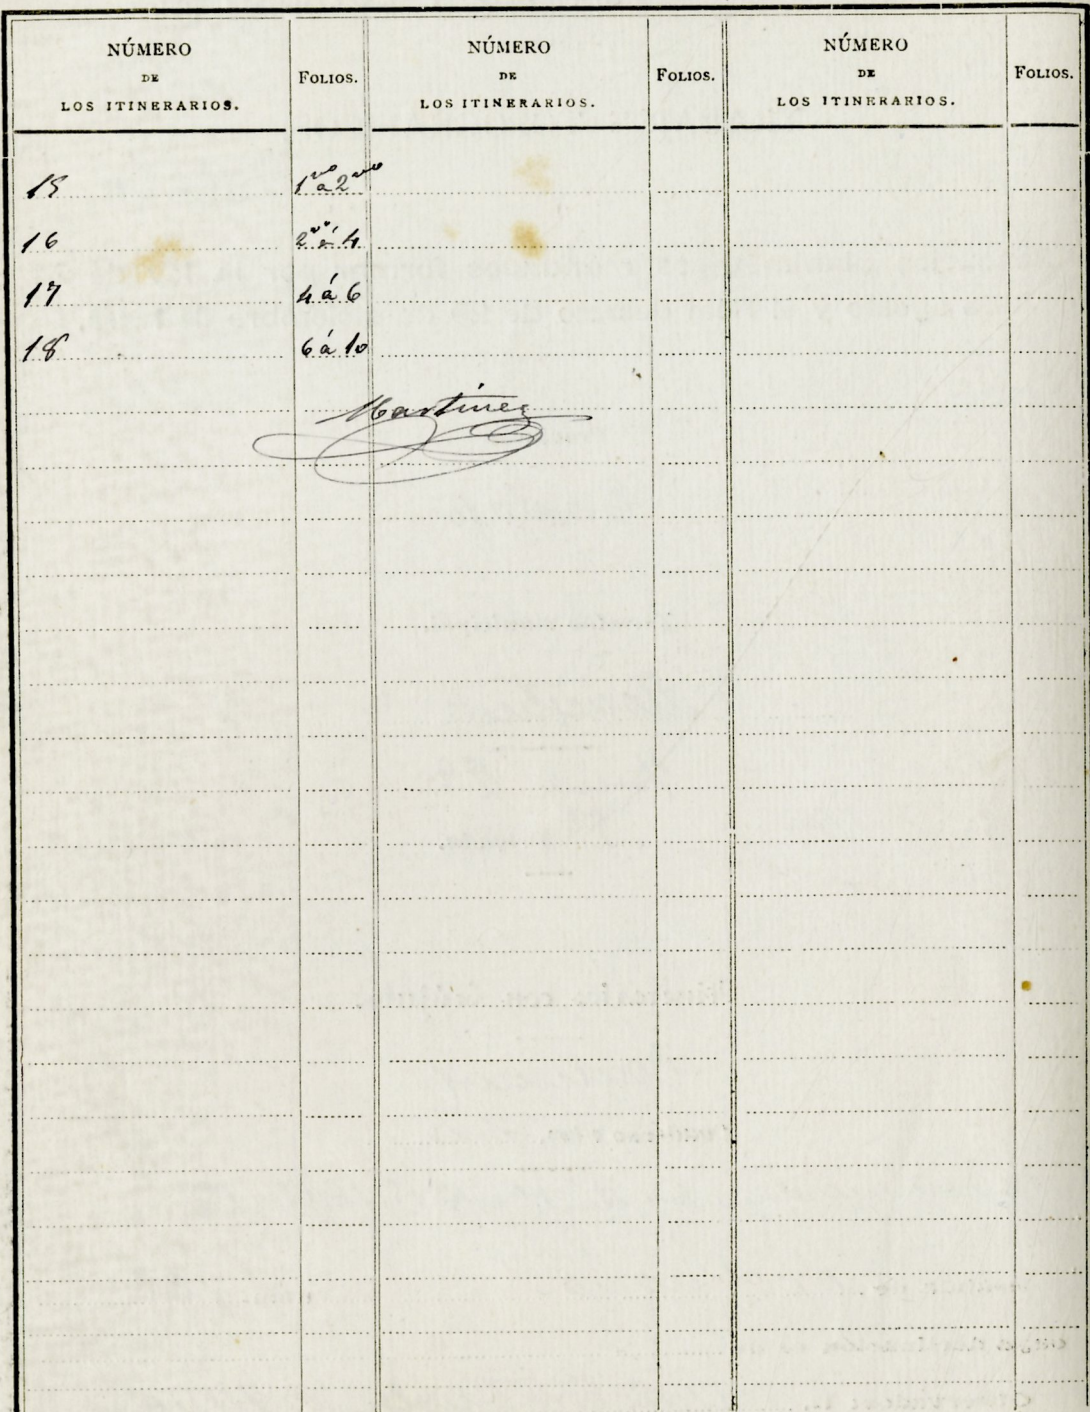 NÚMERO
DE
LOS ITINERARIOS.
FOLIOS.
NÚMERO
DE
LOS ITINERARIOS.
FOLIOS.
NÚMERO
DE
LOS ITINERARIOS.
FOLIOS.
15 1 vto á 2 vto
16 2 vto á 4
17 4 á 6
18 6 á 10
Martinez